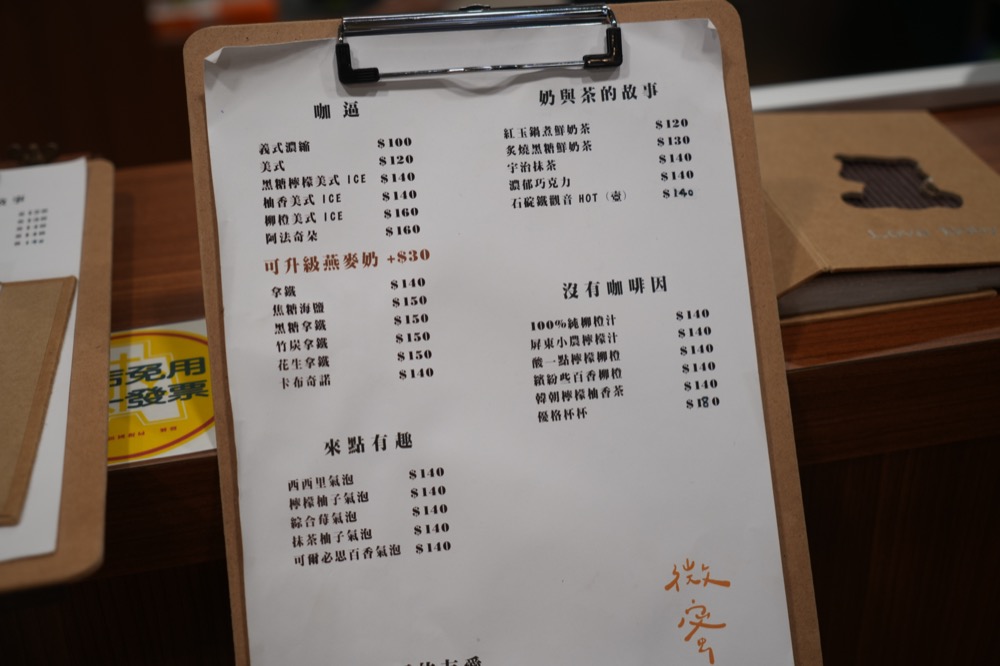 咖逼
義式濃縮 $100
美式 $120
黑糖檸檬美式 ICE $140
柚香美式 ICE $140
柳橙美式 ICE $160
阿法奇朵 $160
可升級燕麥奶 +$30
拿鐵 $140
焦糖海鹽 $150
黑糖拿鐵 $150
竹炭拿鐵 $150
花生拿鐵 $150
卡布奇諾 $140
來點有趣
西西里氣泡 $140
檸檬柚子氣泡 $140
綜合莓氣泡 $140
抹茶柚子氣泡 $140
可爾必思百香氣泡 $140
奶與茶的故事
紅玉鍋煮鮮奶茶 $120
炙燒黑糖鮮奶茶 $130
宇治抹茶 $140
濃郁巧克力 $140
石碇鐵觀音 HOT (壺) $140
沒有咖啡因
100%純柳橙汁 $140
屏東小農檸檬汁 $140
酸一點檸檬柳橙 $140
繽紛些百香柳橙 $140
韓朝檸檬柚香茶 $140
優格杯杯 $180
微蜜
免用
發票